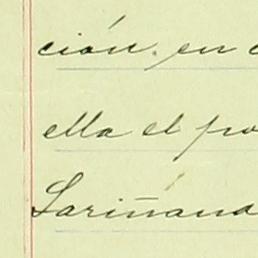 ción. en
ella el
Lariñana